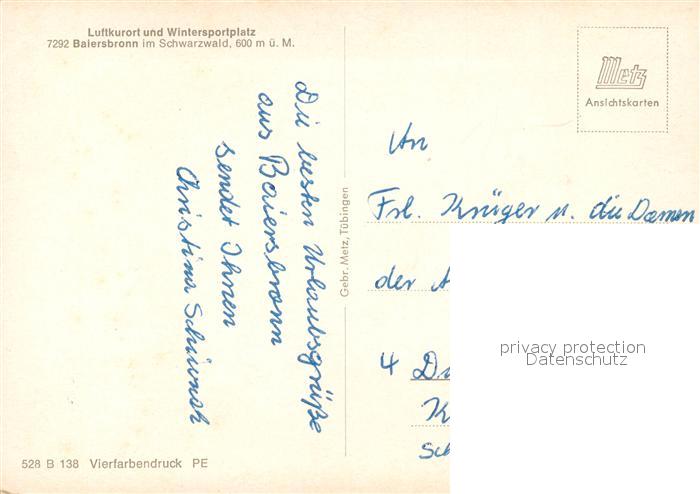 Luftkurort und Wintersportplatz
7292 Baiersbronn im Schwarzwald, 600 m ü. M.
Die besten Urlaubsgrüße
aus Baiersbronn
sendet Ihnen
Christina
528 B 138 Vierfarbendruck PE
Gebr. Metz, Tübingen
Metz
Ansichtskarten
An
Frl. Krüger u. die Damen
der A
4 Dü
K
Sch
privacy protection
Datenschutz